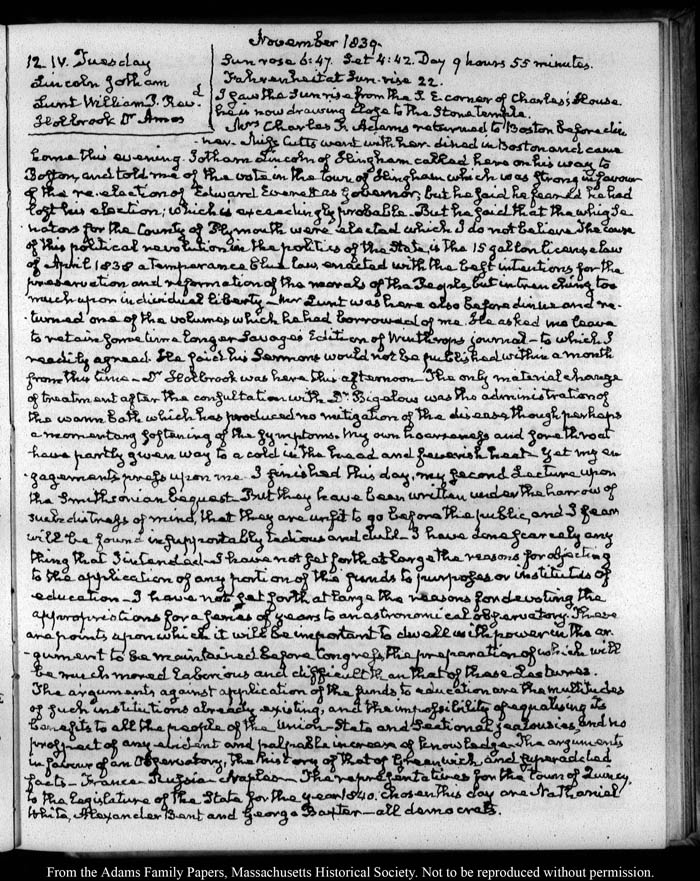 November 1839.
12. IV. Tuesday
Lincoln Jotham
Lunt William P. Revd
Holbrook Dr Amos
Sun rose 6:47. Set 4:42. Day 9 hours 55 minutes.
Fahrenheit at Sun-rise 22.
I saw the Sun rise from the S. E. corner of Charles's House
he is now drawing close to the Stone temple.
Mrs Charles F. Adams returned to Boston before din-
ner. Miss Cutts went with her. dined in Boston and came
home this evening. Jotham Lincoln of Hingham called here on his way to
Boston, and told me of the vote in the town of Hingham which was strong in favour
of the re-election of Edward Everett as Governor; but he said he feared he had
lost his election; which is exceedingly probable. But he said that the whig Se-
nators for the County of Plymouth were elected which I do not believe The cause
of this political revolution in the politics of the State, is the 15 gallon license law
of April 1838 a Temperance blue law, enacted with the best intentions for the
preservation and reformation of the morals of the People, but intrenching too
much upon individual liberty — Mr Lunt was here also before dinner and re-
turned one of the volumes which he had borrowed of me. He asked me leave
to retain some time longer Savage's Edition of Winthrop's journal — to which I
readily agreed. He said his Sermons would not be published within a month
from this time — Dr Holbrook was here this afternoon — The only material change
of treatment after the consultation with Dr Bigelow was the administration of
the warm bath which has produced no mitigation of the disease, though perhaps
a momentary softening of the symptoms. My own hoarseness and sore throat
have partly given way to a cold in the head and feverish heat — Yet my en-
gagements press upon me. I finished this day, my second Lecture upon
the Smithsonian bequest — But they have been written under the harrow of
such distress of mind, that they are unfit to go before the public, and I fear
will be found insupportably tedious and dull — I have done scarcely any
thing that I intended — I have not set forth at large the reasons for objecting
to the application of any portion of the funds to purposes or institutes of
education — I have not set forth at large the reasons for devoting the
appropriations for a series of years to an astronomical observatory. These
are points upon which it will be important to dwell with power in the ar-
gument to be maintained before Congress, the preparation of which will
be much more laborious and difficult than that of these Lectures.
The arguments against application of the funds to education are the multitudes
of such institutions already existing, and the impossibility of equalising its
benefits to all the people of the Union — State and Sectional jealousies, and no
prospect of any evident and palpable increase of knowledge — The arguments
in favour of an Observatory, the history of that of Greenwich, and superadded
facts — France — Russia — Naples — The representatives for the town of Quincy,
to the Legislature of the State for the year 1840. chosen this day are Nathaniel
White, Alexander Bent and George Baxter — all democrats.
From the Adams Family Papers, Massachusetts Historical Society. Not to be reproduced without permission.